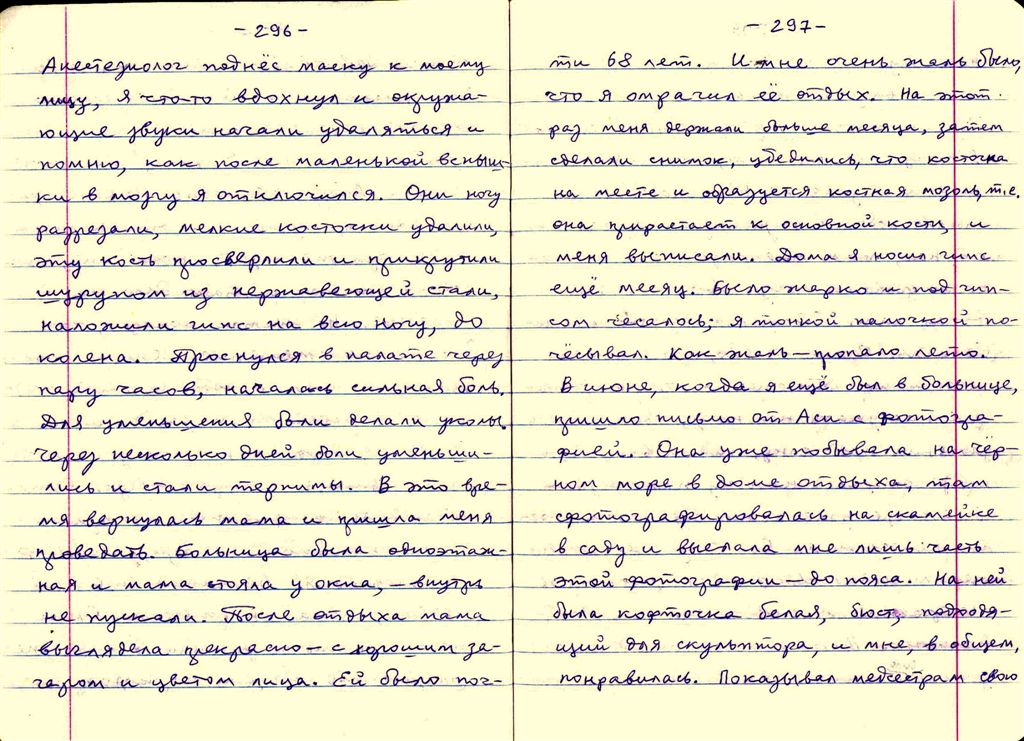 - 296 -
Анестезиолог поднёс маску к моему
лицу, я что-то вдохнул и окружа-
ющие звуки начали удаляться и
помню, как после маленькой вспыш-
ки в мозгу я отключился. Они ногу
разрезали, мелкие косточки удалили,
эту кость просверлили и прикрутили
шурупом из нержавеющей стали,
наложили гипс на всю ногу, до
колена. Проснулся в палате через
пару часов, началась сильная боль.
Для уменьшения боли делали уколы.
через несколько дней боли уменьши-
лись и стали терпимы. В это вре-
мя вернулась мама и пришла меня
проведать. Больница была одноэтаж-
ная и мама стояла у окна, - внутрь
не пускали. После отдыха мама
выглядела прекрасно - с хорошим за-
гаром и цветом лица. Ей было поч-
- 297 -
ти 68 лет. И мне очень жаль было,
что я омрачил её отдых. На этот
раз меня держали больше месяца, затем
сделали снимок, убедились, что косточка
на месте и образуется костная мозоль, т.е.
она прирастает к основной кости, и
меня выписали. Дома я носил гипс
ещё месяц. Было жарко и под гип-
сом чесалось; я тонкой палочкой по-
чёсывал. Как жаль - пропало лето.
В июне, когда я ещё был в больнице,
пришло письмо от Аси с фотогра-
фией. Она уже побывала на Чёр-
ном море в доме отдыха, там
сфотографировалась на скамейке
в саду и выслала мне лишь часть
этой фотографии - до пояса. На ней
была кофточка белая, бюст, подходя-
щий для скульптора, и мне, в общем,
понравилась. Показывал медсестрам свою